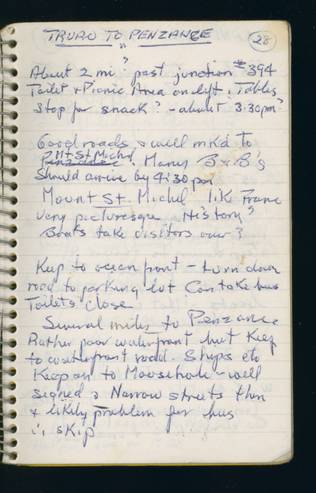 TRURO TO PENZANCE
28
"
?
About 2 mi past junction #394
Toilet & Picnic Area on left. Tables
Stop for snack? - about 3:30pm?
Good roads & well mk'd to
Mt St Michel Many B&B's
Should arrive by 4:30pm
Mount St. Michel l.k France
Very picturesque History?
Boats take visitors over?
Keep to ocean front - turn down
road to parking lot Can take bus
Toilets close
Several miles to Penzance
Rather poor waterfront but Keep
to waterfront road. Ships etc
Keep on to Mousehole - well
signed & Narrow streets then
& likely problem for bus
∴ skip